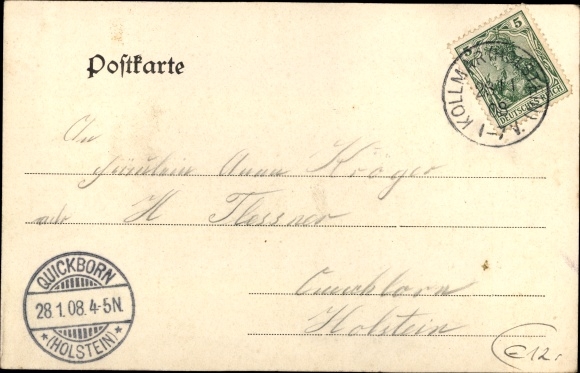 Postkarte
5
DEUTSCHES REICH
KOLLM
An
Fräulein Anna Kröger
H Flessner
QUICKBORN
28.1.08.4-5N.
*(HOLSTEIN)*
Quickborn
Holstein
€12,